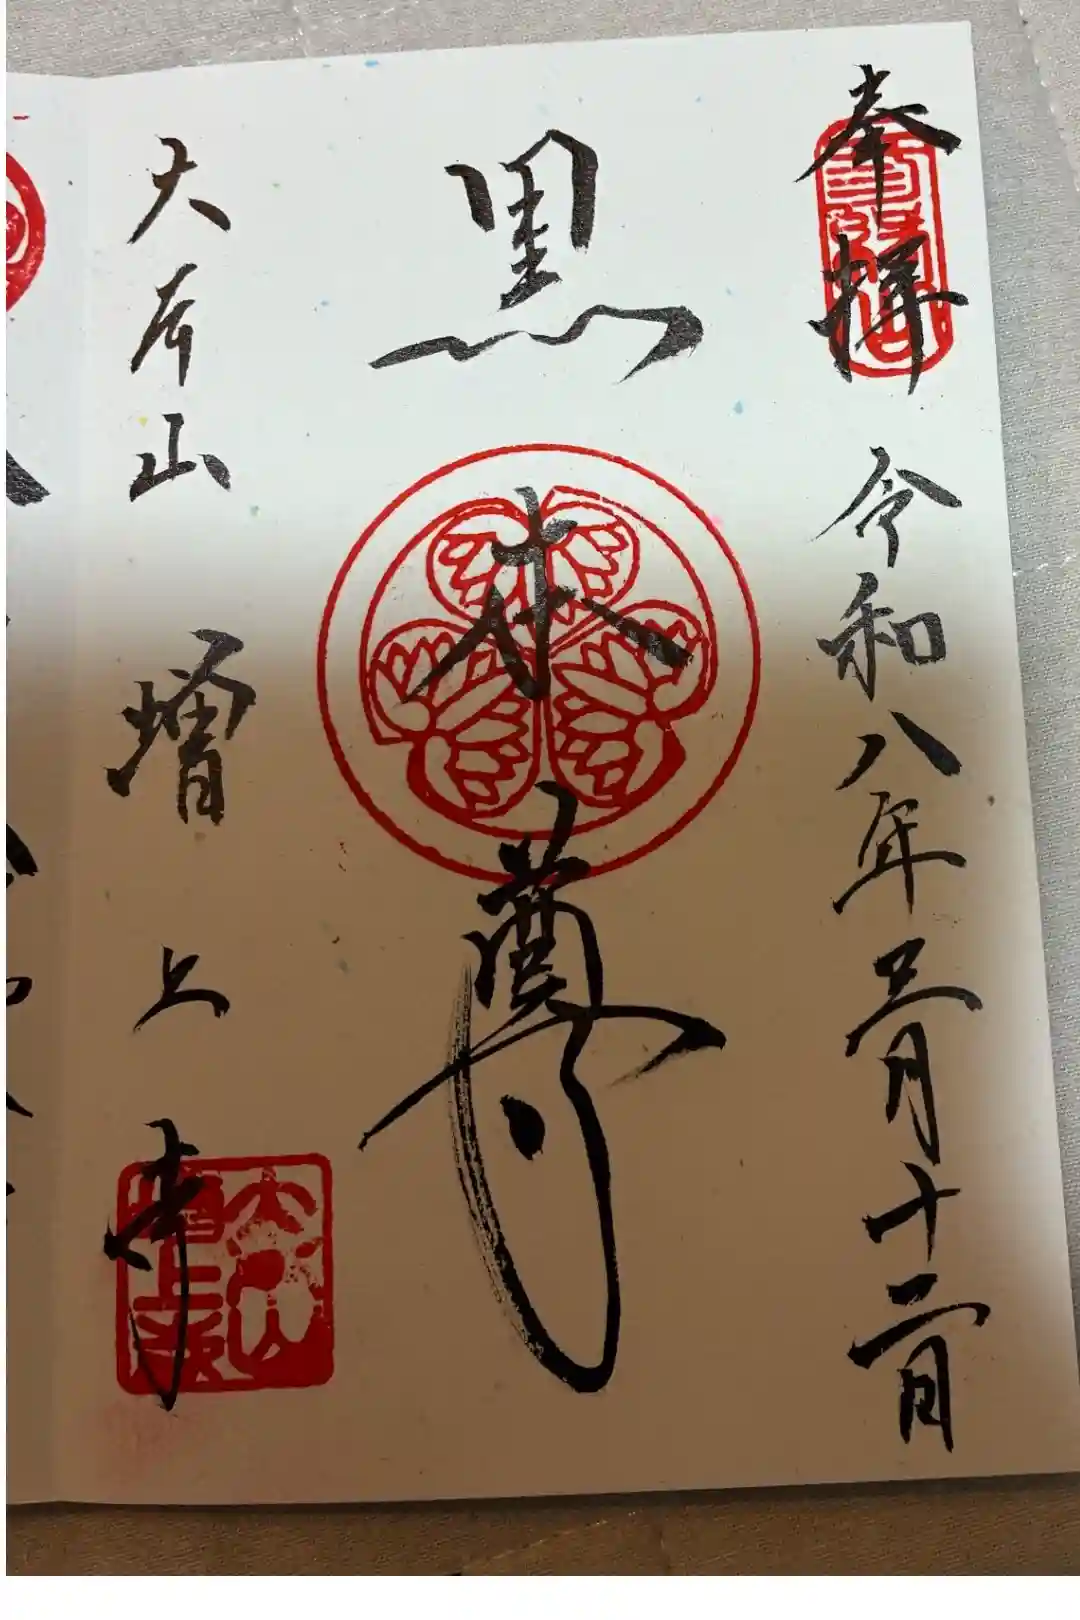 奉拝 令和八年三月十二日
黒本尊
大本山 増上寺
大本山
増上寺